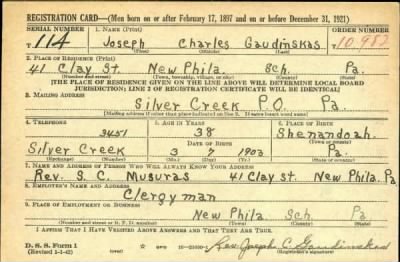 REGISTRATION CARD—(Men born on or after February 17, 1897 and on or before December 31, 1921)
SERIAL NUMBER 1. NAME (Print) ORDER NUMBER
T 114 Joseph Charles Gaudinskas T 10,982
2. PLACE OF RESIDENCE (Print)
41 Clay St. New Phila. Sch. Pa.
(Number and street) (Town, township, village, or city) (County) (State)
[THE PLACE OF RESIDENCE GIVEN ON THE LINE ABOVE WILL DETERMINE LOCAL BOARD
JURISDICTION; LINE 2 OF REGISTRATION CERTIFICATE WILL BE IDENTICAL]
3. MAILING ADDRESS
Silver Creek P.O. Pa.
[Mailing address if other than place indicated on line 2. If same insert word same]
4. TELEPHONE 5. AGE IN YEARS 6. PLACE OF BIRTH
3451 38 Shenandoah.
DATE OF BIRTH (Town or county)
Silver Creek 3 7 1903 Pa.
(Exchange) (Number) (Mo.) (Day) (Yr.) (State or country)
7. NAME AND ADDRESS OF PERSON WHO WILL ALWAYS KNOW YOUR ADDRESS
Rev. S. C. Musuras 41 Clay St. New Phila. Pa
8. EMPLOYER'S NAME AND ADDRESS
Clergyman
9. PLACE OF EMPLOYMENT OR BUSINESS
New Phila Sch. Pa
(Number and street or R. F. D. number) (Town) (County) (State)
I AFFIRM THAT I HAVE VERIFIED ABOVE ANSWERS AND THAT THEY ARE TRUE.
D. S. S. Form 1
(Revised 1-1-42) GPO Rev. Joseph C. Gaudinskas
(Registrant's signature)